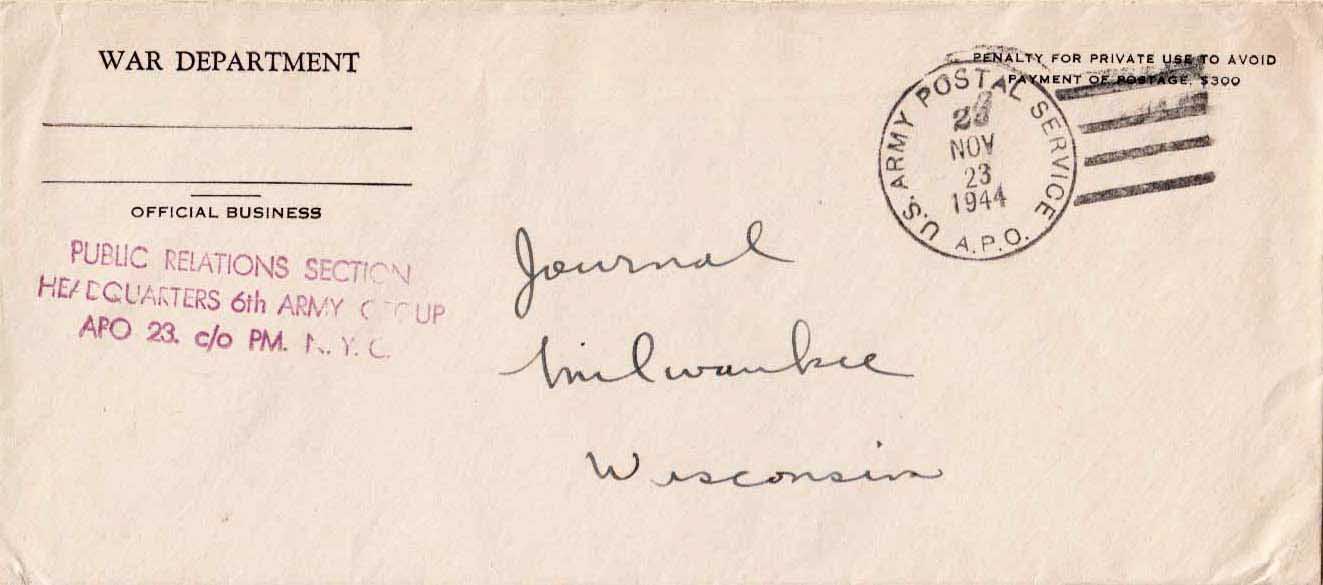 WAR DEPARTMENT
OFFICIAL BUSINESS
PUBLIC RELATIONS SECTION
HEADQUARTERS 6th ARMY GROUP
APO 23. c/o PM. N.Y.C.
PENALTY FOR PRIVATE USE TO AVOID
PAYMENT OF POSTAGE, $300
U.S. ARMY POSTAL SERVICE
NOV
23
1944
A.P.O.
Journal
Milwaukee
Wisconsin